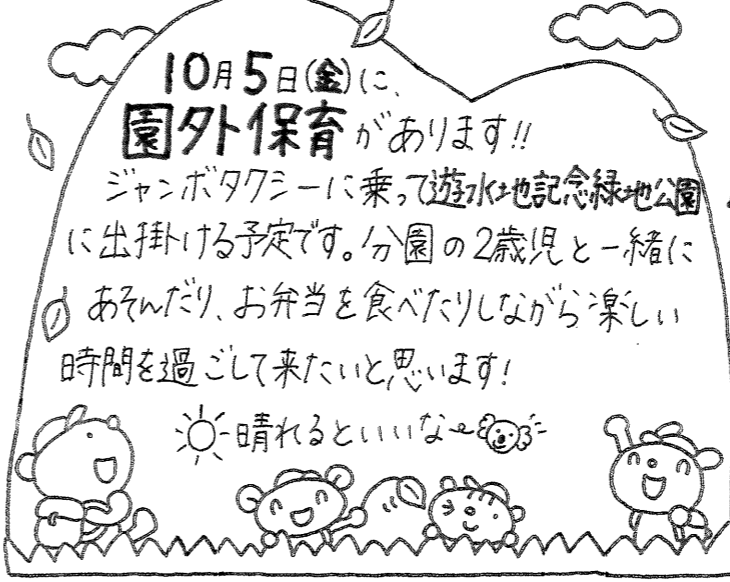 10月5日(金)に、
園外保育があります!!
ジャンボタクシーに乗って遊水地記念緑地公園
に出掛ける予定です。分園の2歳児と一緒に
あそんだり、お弁当を食べたりしながら楽しい
時間を過ごして来たいと思います!
晴れるといいな~